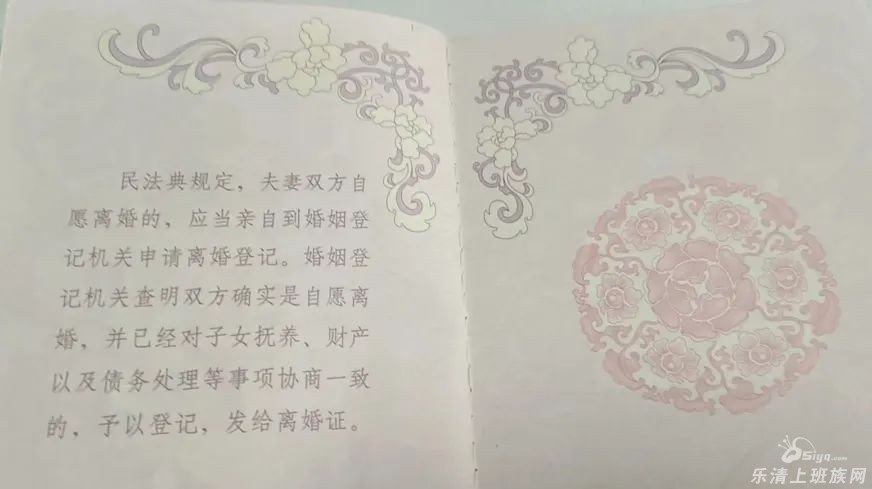 民法典规定，夫妻双方自
愿离婚的，应当亲自到婚姻登
记机关申请离婚登记。婚姻登
记机关查明双方确实是自愿离
婚，并已经对子女抚养、财产
以及债务处理等事项协商一致
的，予以登记，发给离婚证。
Siyq.com
乐清上班族网